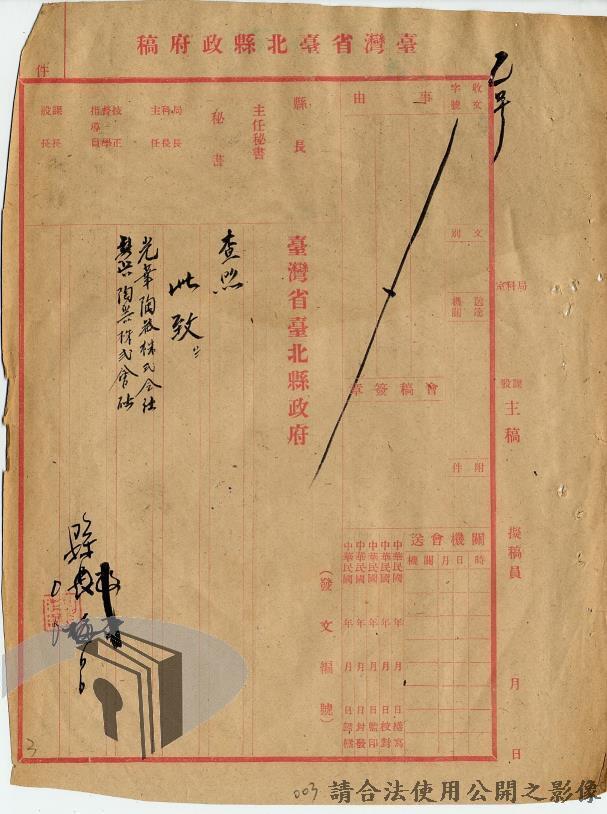 臺灣省臺北縣政府稿
件
收文
字號
事由
縣長
主任秘書
秘書
局長
科長
主任
技正
督學
指導員
課長
股長
文別
送達機關
附件
會稿簽章
關機會送
時日月關機
中華民國 年 月 日繕寫
中華民國 年 月 日校對
中華民國 年 月 日監印
中華民國 年 月 日封發
中華民國 年 月 日歸檔
(發文編號)
局科室
課股
主稿
擬稿員
月
日
臺灣省臺北縣政府
查照
此致
光華陶器株式会社
陶器株式會社
縣長
3
003
請合法使用公開之影像